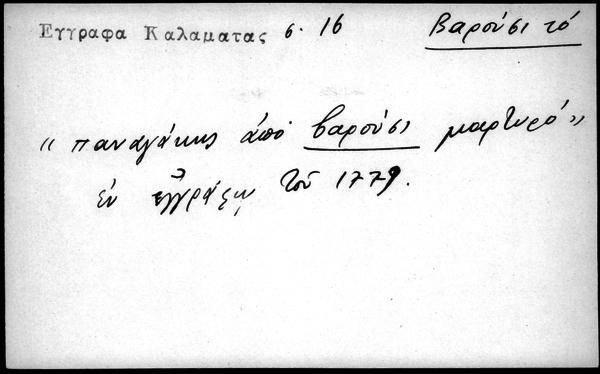 Εγγραφα Καλαματας σ. 16 Βαρούσι τό
"παναγάκης ἀπό βαρούσι μαρτυρῶ"
ἐν ἐγγράφῳ τοῦ 1779.